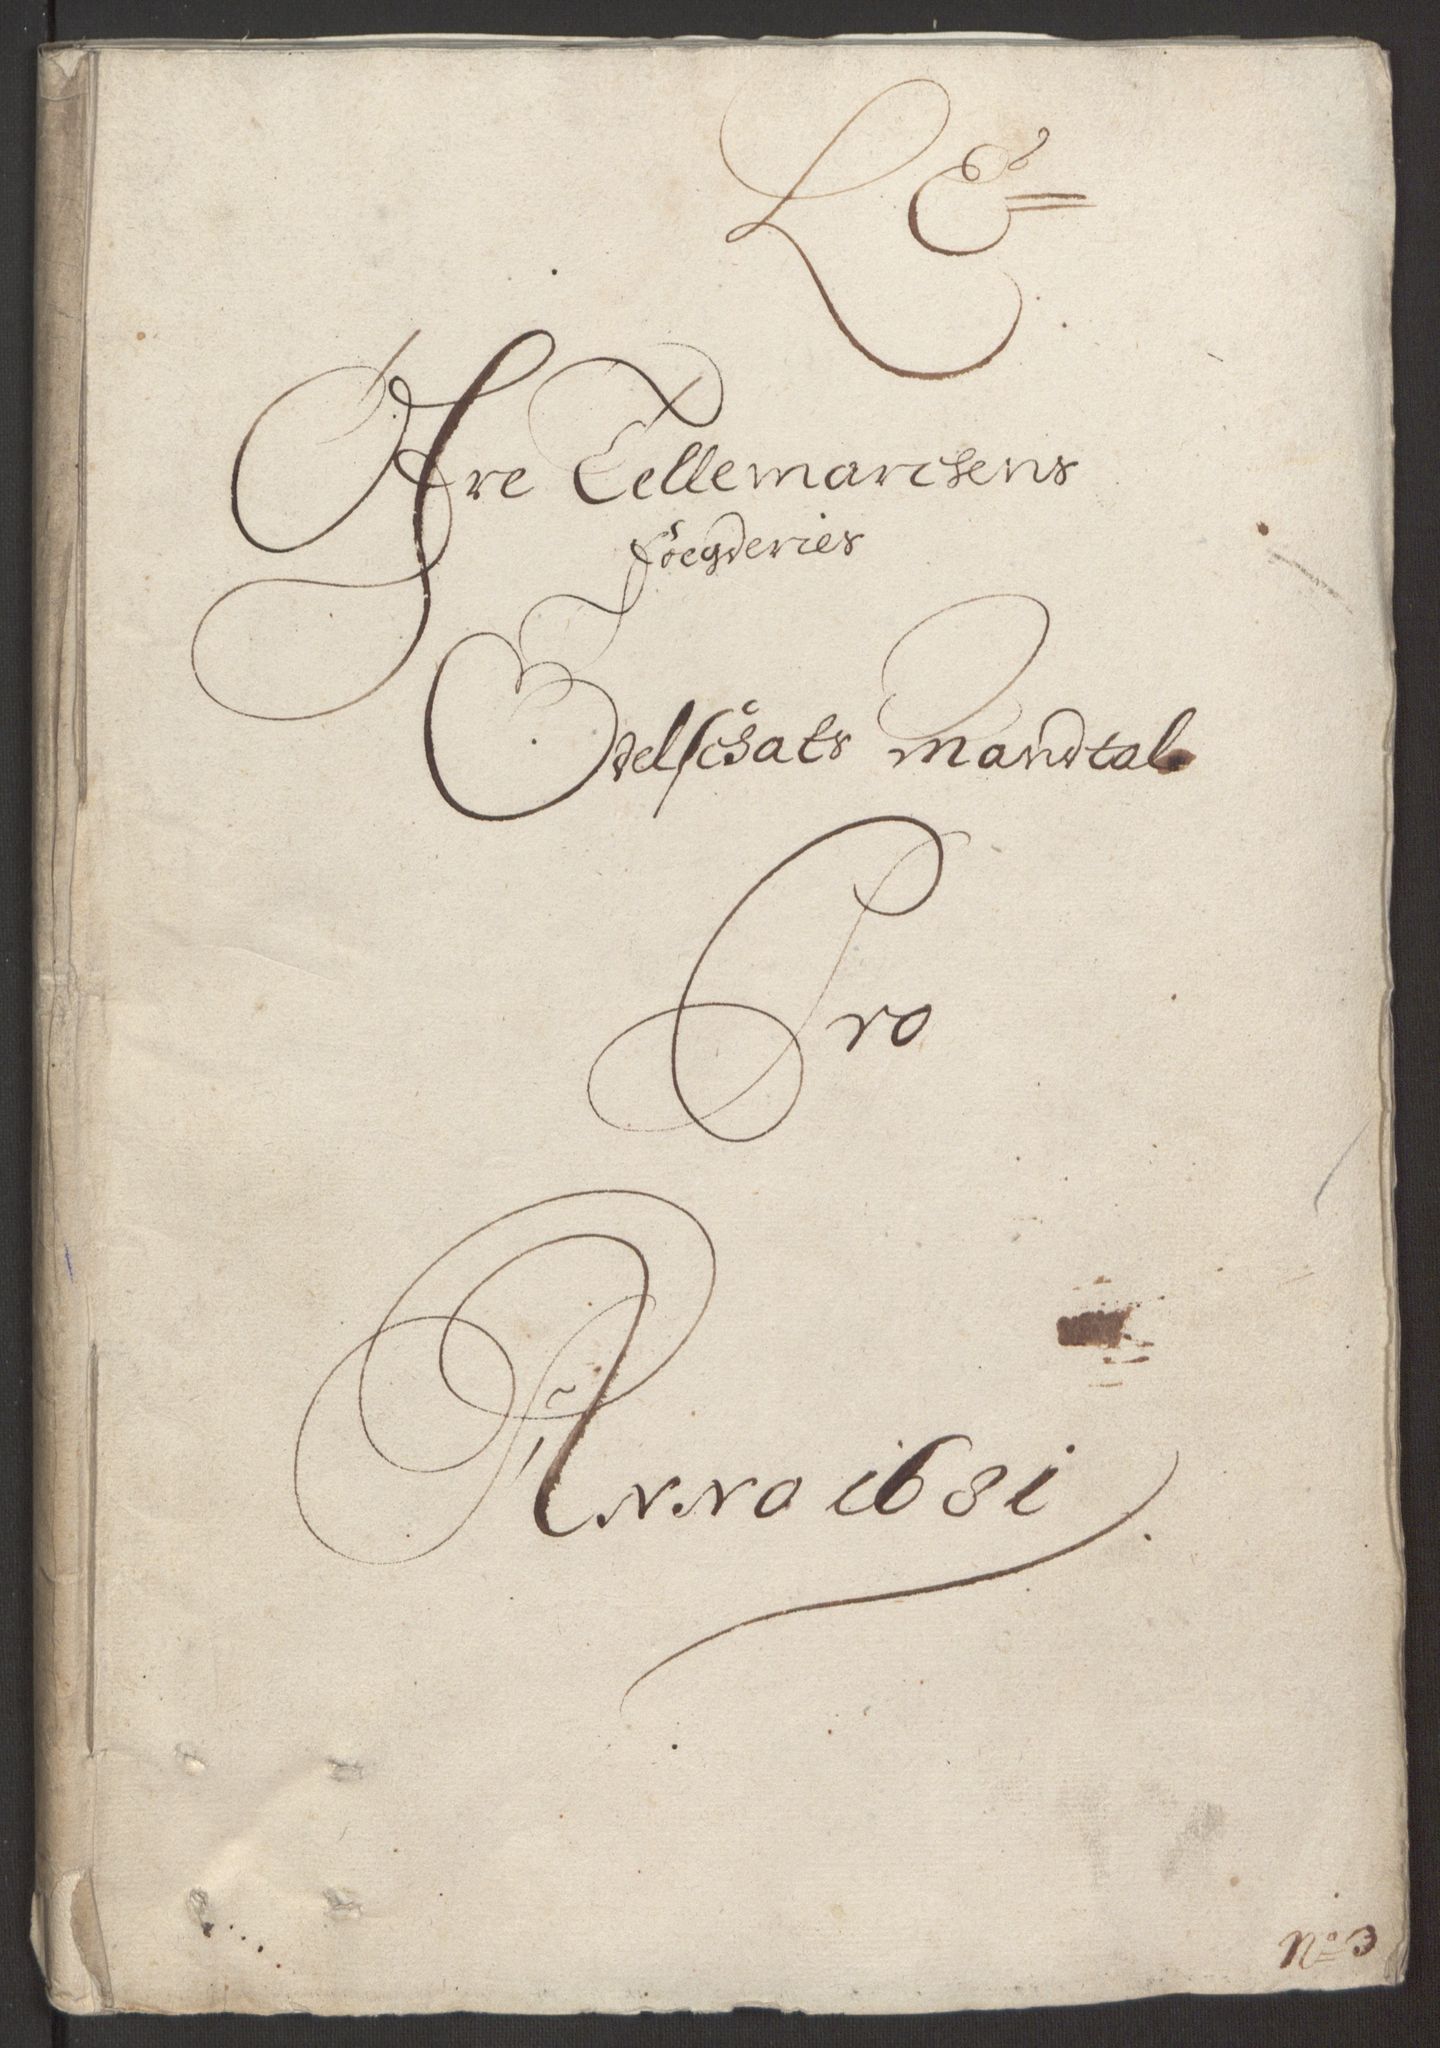 L E
Øfre Tellemarchens
Foegderies
Odelschats Mandtal
Pro
Anno 1681
No 3